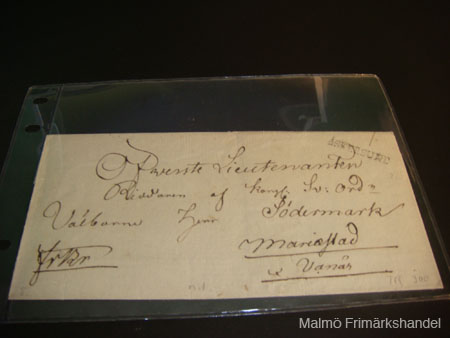 Öfverste Lieutenanten
Riddaren af Kongl. Sv: Ord:
Välborne Herr Södermark
Mariæstad
Vanäs
frkr
Malmö Frimärkshandel